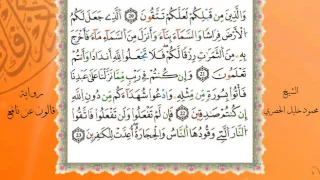 وَالذِينَ مِن قَبْلِكُمْ لَعَلَّكُمْ تَتَّقُونَ ٢٠ الذِے جَعَلَ لَكُمُ
الْأَرْضَ فِرَٰشًا وَالسَّمَآءَ بِنَآءً وَأَنزَلَ مِنَ السَّمَآءِ مَآءً فَأَخْرَجَ
بِهِۦ مِنَ الثَّمَرَٰتِ رِزْقًا لَّكُمْ فَلَا تَجْعَلُوا۟ لِلهِ أَندَادًا وَأَنتُمْ
تَعْلَمُونَ ٢١ وَإِن كُنتُمْ فِے رَيْبٍ مِّمَّا نَزَّلْنَا عَلَىٰ عَبْدِنَا
فَأْتُوا۟ بِسُورَةٍ مِّن مِّثْلِهِۦ وَادْعُوا۟ شُهَدَآءَكُم مِّن دُونِ اللهِ
إِن كُنتُمْ صَٰدِقِينَ ٢٢ فَإِن لَّمْ تَفْعَلُوا۟ وَلَن تَفْعَلُوا۟ فَاتَّقُوا۟
النَّارَ التِے وَقُودُهَا النَّاسُ وَالْحِجَارَةُ أُعِدَّتْ لِلْكَٰفِرِينَ ٢٣
الشيخ
محمود خليل الحصري
رواية
قالون عن نافع